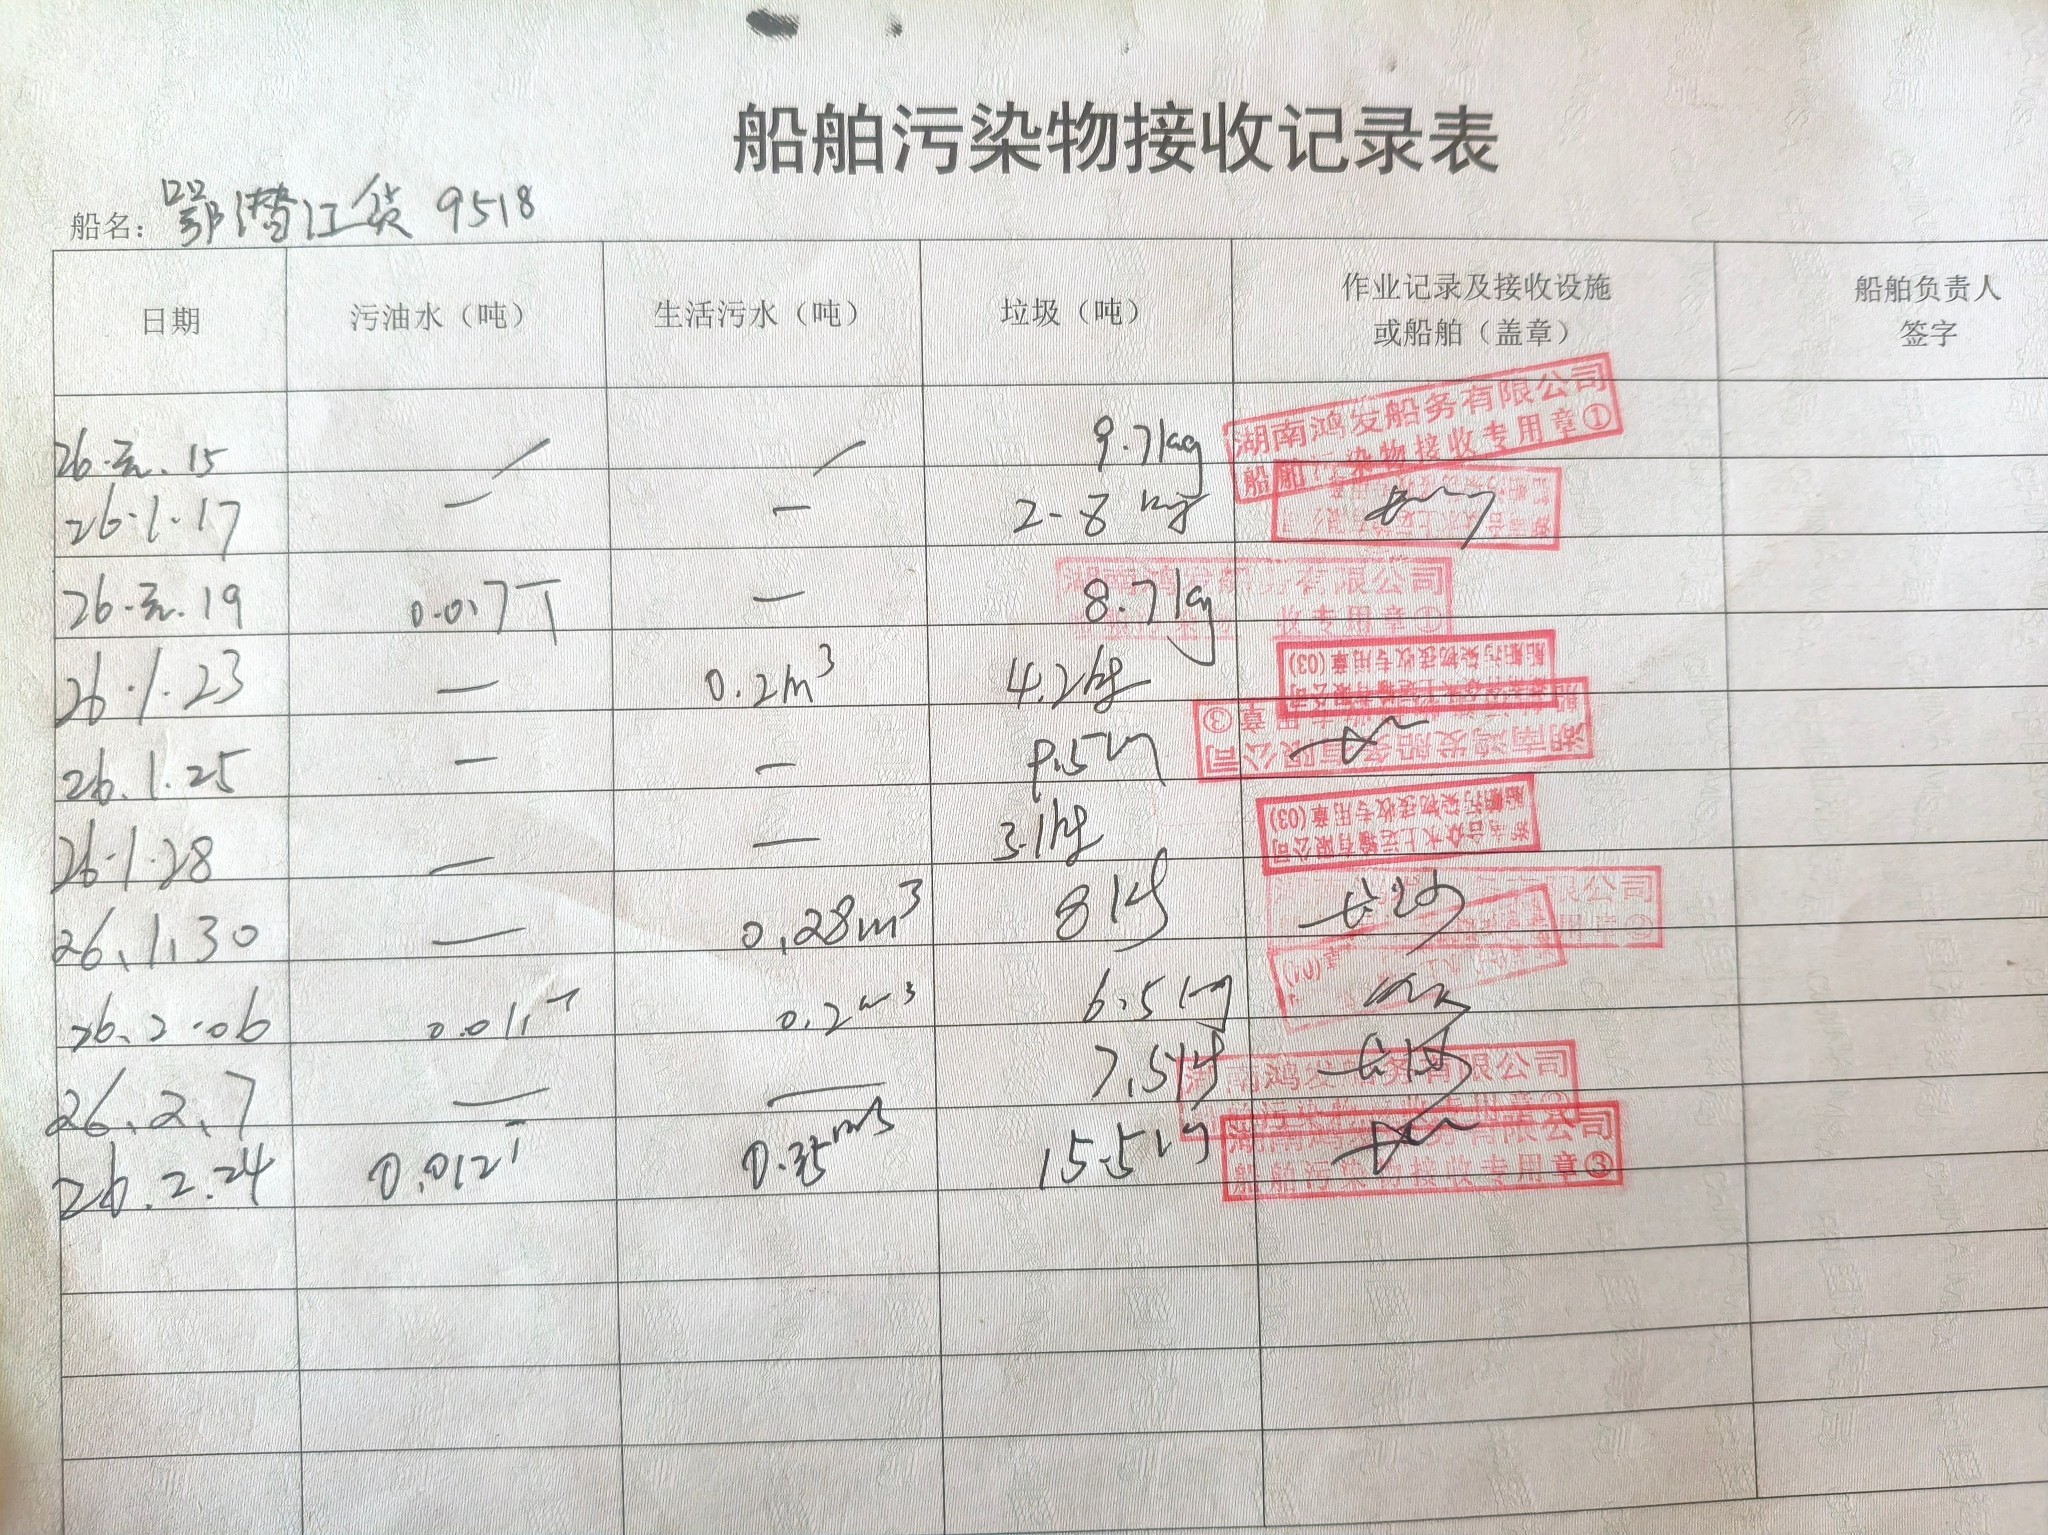 船舶污染物接收记录表
船名：鄂潜江货 9518
日期 污油水（吨） 生活污水（吨） 垃圾（吨） 作业记录及接收设施或船舶（盖章） 船舶负责人签字
26.元.15 / / 9.7kg
湖南鸿发船务有限公司
船舶污染物接收专用章①
26.1.17 — — 2.8 kg
26.元.19 0.017T — 8.7kg
限公司
收专用章①
26.1.23 — 0.2m³ 4.2kg
船舶污染物接收专用章(03)
26.1.25 — — 9.5kg
湖南鸿发船务有限公司
章③
26.1.28 — — 3.1kg
船舶污染物接收专用章(03)
水上运输有限公司
26.1.30 — 0.28m³ 8kg
公司
26.2.06 0.011T 0.2m³ 6.5kg
26.2.7 — — 7.5kg
湖南鸿发船务有限公司
26.2.24 0.012T 0.35m³ 15.5kg
湖南鸿发船务有限公司
船舶污染物接收专用章③